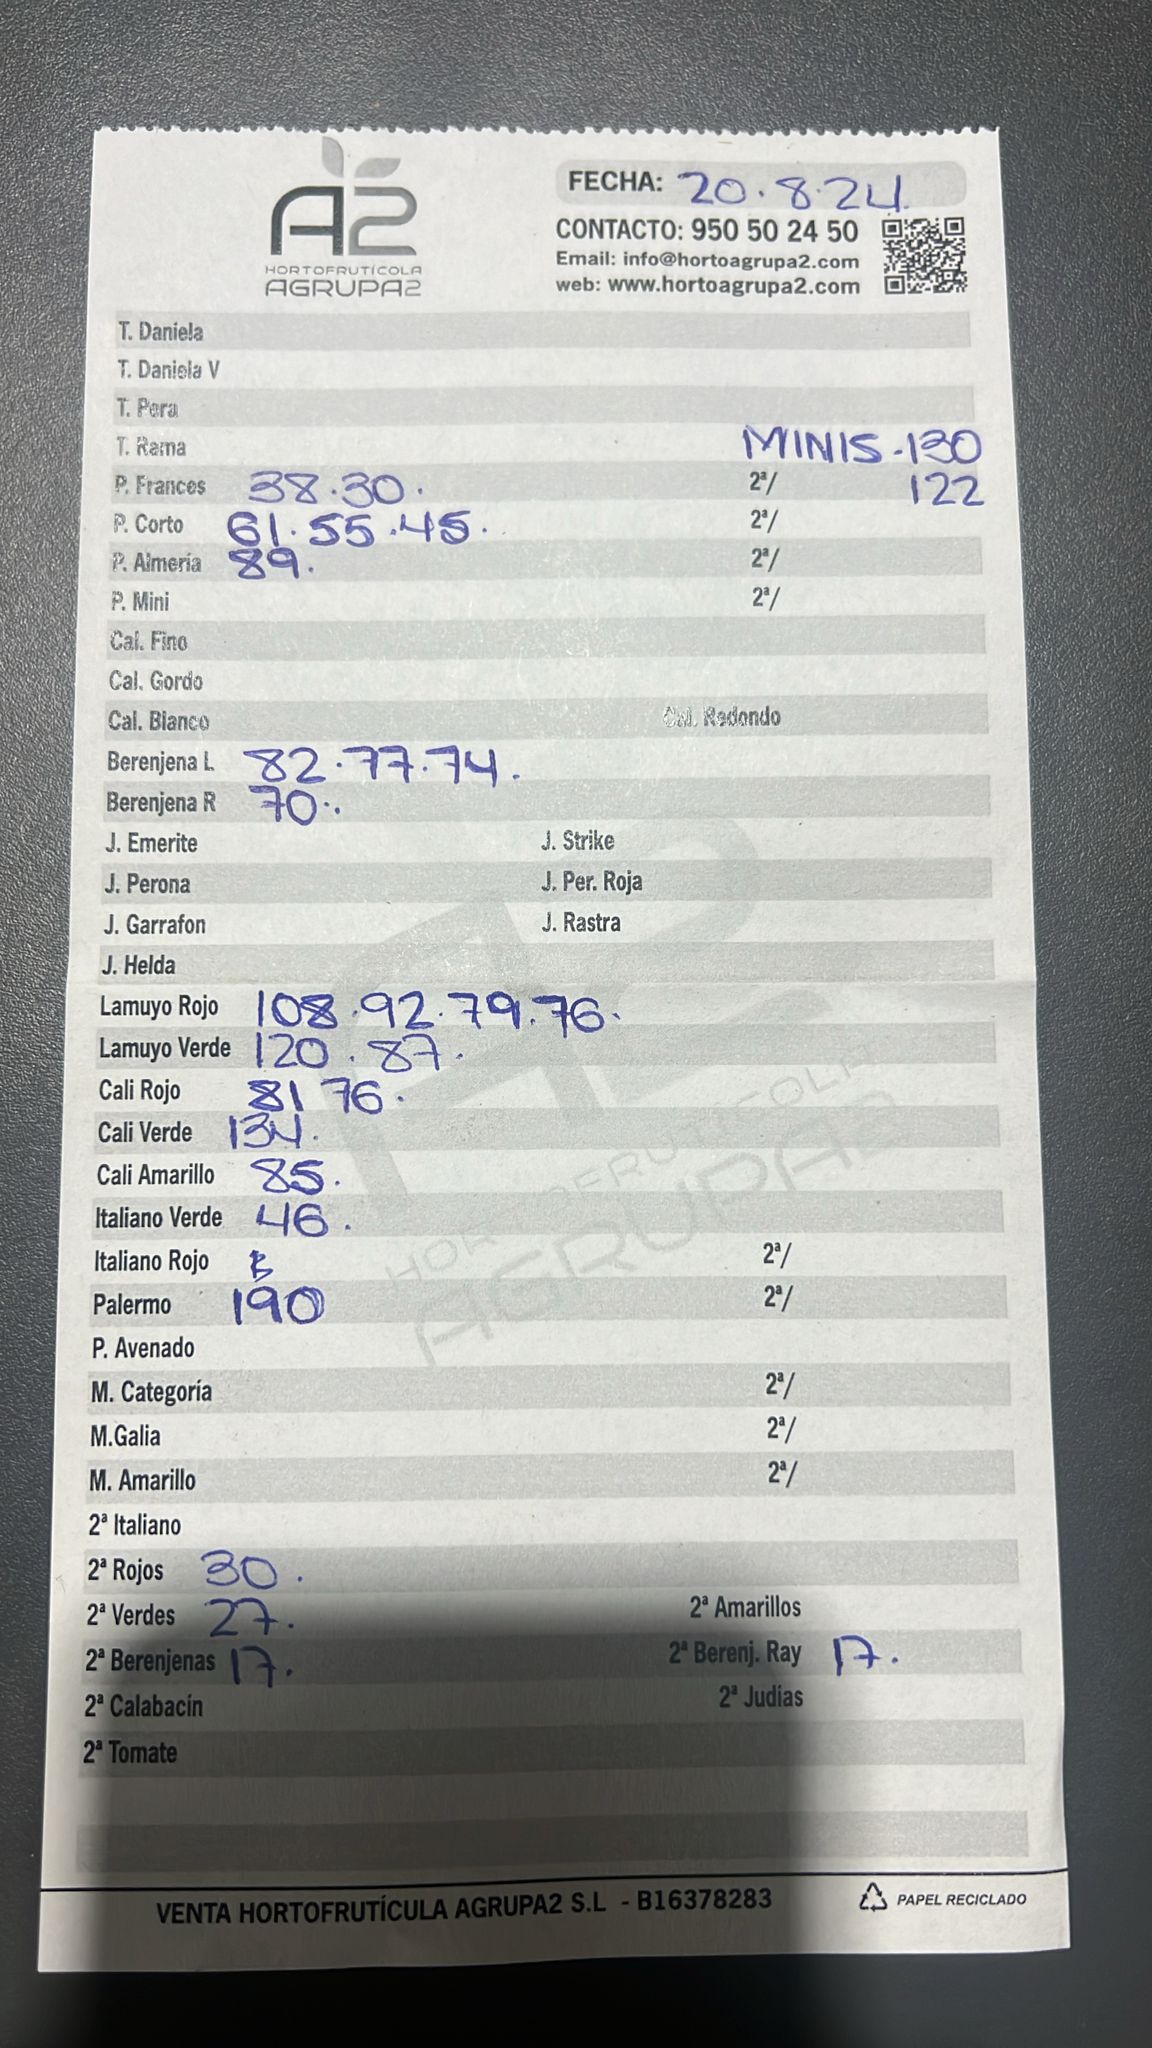 A2
HORTOFRUTÍCOLA
AGRUPA2
FECHA: 20.8.24.
CONTACTO: 950 50 24 50
Email: info@hortoagrupa2.com
web: www.hortoagrupa2.com
T. Daniela
T. Daniela V
T. Pera
T. Rama MINIS.130
P. Frances 38.30. 2ª/ 122
P. Corto 61.55.45. 2ª/
P. Almería 89. 2ª/
P. Mini 2ª/
Cal. Fino
Cal. Gordo
Cal. Blanco Cal. Redondo
Berenjena L 82.77.74.
Berenjena R 70..
J. Emerite J. Strike
J. Perona J. Per. Roja
J. Garrafon J. Rastra
J. Helda
Lamuyo Rojo 108.92.79.76.
Lamuyo Verde 120.87.
Cali Rojo 81 76.
Cali Verde 134.
Cali Amarillo 85.
Italiano Verde 46.
Italiano Rojo 2ª/
Palermo 190 2ª/
P. Avenado
M. Categoría 2ª/
M.Galia 2ª/
M. Amarillo 2ª/
2ª Italiano
2ª Rojos 30.
2ª Verdes 27. 2ª Amarillos
2ª Berenjenas 17. 2ª Berenj. Ray 17.
2ª Calabacín 2ª Judías
2ª Tomate
HORTOFRUTÍCOLA
AGRUPA2
VENTA HORTOFRUTÍCULA AGRUPA2 S.L - B16378283
PAPEL RECICLADO